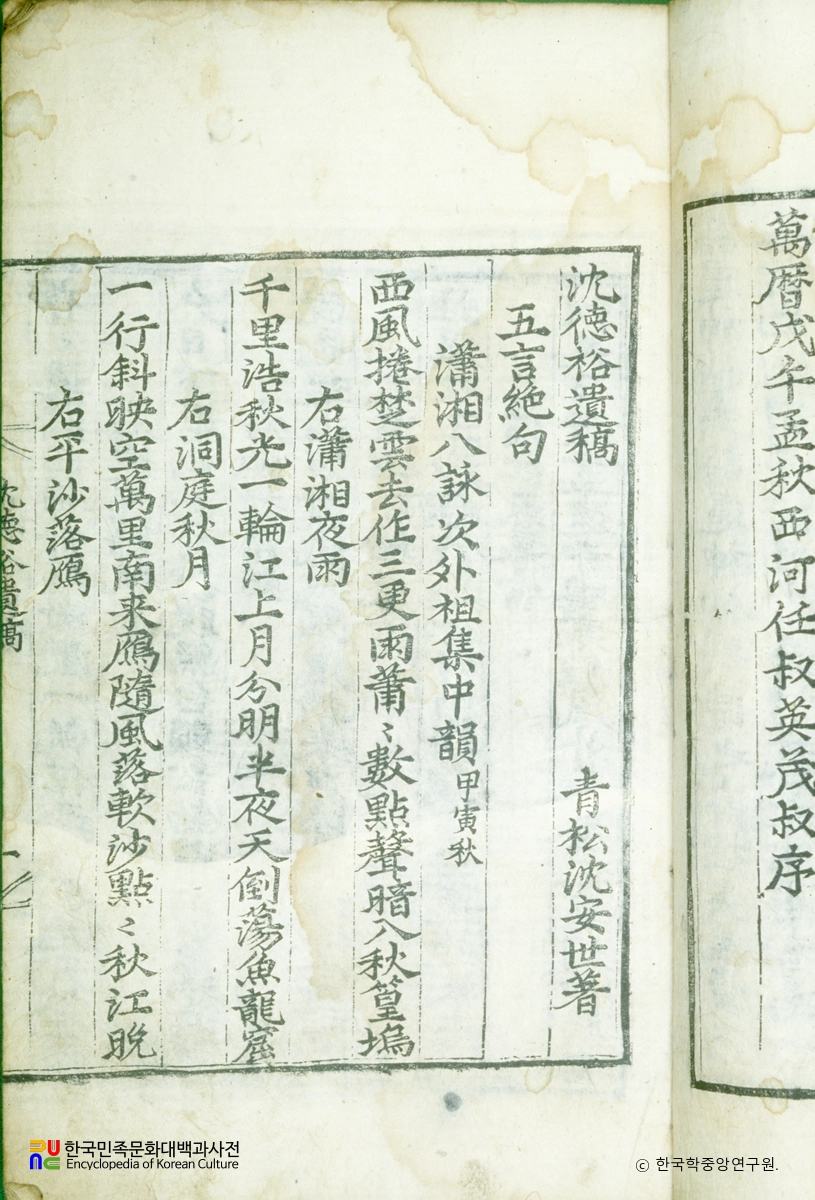 萬曆戊午孟秋西河任叔英茂叔序
沈德裕遺稿
青松沈安世著
五言絶句
瀟湘八詠次外祖集中韻 甲寅秋
西風捲楚雲去作三更雨蕭〻數點聲暗入秋篁塢
右瀟湘夜雨
千里浩秋光一輪江上月分明半夜天倒蕩魚龍窟
右洞庭秋月
一行斜映空萬里南来鴈隨風落軟沙點〻秋江晩
右平沙落鴈
沈德裕遺稿
一
한국민족문화대백과사전
Encyclopedia of Korean Culture
ⓒ 한국학중앙연구원.